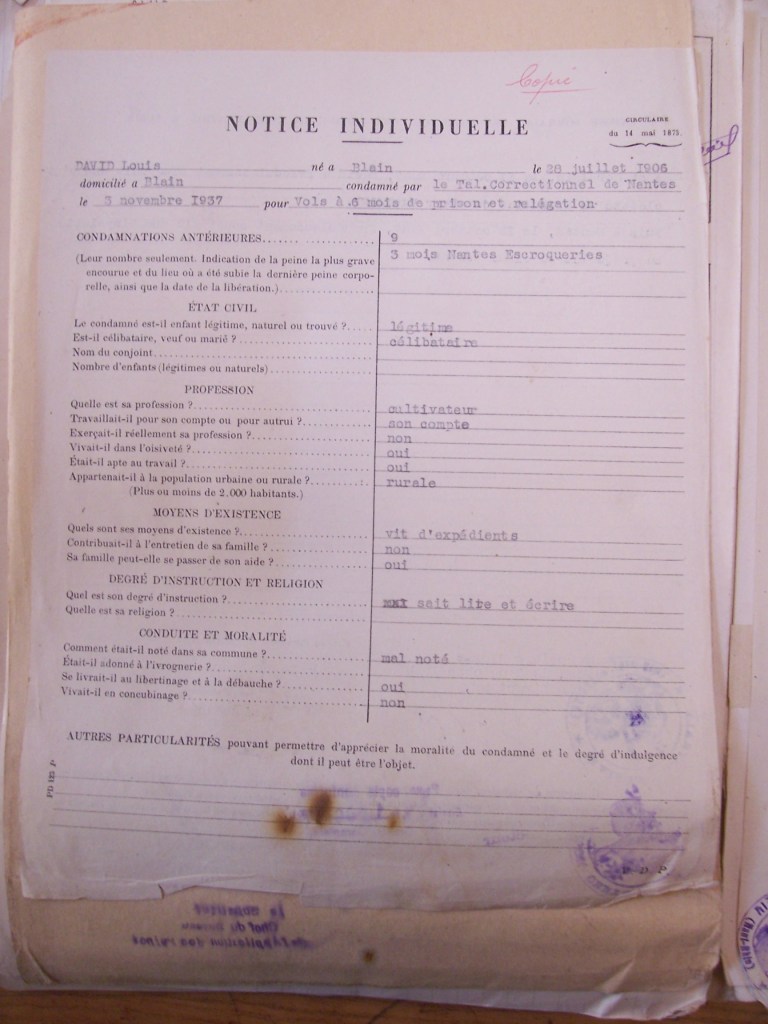 Copie
NOTICE INDIVIDUELLE
CIRCULAIRE
du 14 mai 1875.
DAVID Louis né a Blain le 28 juillet 1906
domicilié a Blain condamné par le Tal.Correctionnel de Nantes
le 3 novembre 1937 pour Vols à 6 mois de prison et relégation
CONDAMNATIONS ANTÉRIEURES 9
(Leur nombre seulement. Indication de la peine la plus grave 3 mois Nantes Escroqueries
encourue et du lieu où a été subie la dernière peine corpo-
relle, ainsi que la date de la libération.)
ÉTAT CIVIL
Le condamné est-il enfant légitime, naturel ou trouvé ? légitime
Est-il célibataire, veuf ou marié ? célibataire
Nom du conjoint
Nombre d'enfants (légitimes ou naturels)
PROFESSION
Quelle est sa profession ? cultivateur
Travaillait-il pour son compte ou pour autrui ? son compte
Exerçait-il réellement sa profession ? non
Vivait-il dans l'oisiveté ? oui
Était-il apte au travail ? oui
Appartenait-il à la population urbaine ou rurale ? rurale
(Plus ou moins de 2.000 habitants.)
MOYENS D'EXISTENCE
Quels sont ses moyens d'existence ? vit d'expédients
Contribuait-il à l'entretien de sa famille ? non
Sa famille peut-elle se passer de son aide ? oui
DEGRÉ D'INSTRUCTION ET RELIGION
Quel est son degré d'instruction ? sait lire et écrire
Quelle est sa religion ?
CONDUITE ET MORALITÉ
Comment était-il noté dans sa commune ? mal noté
Était-il adonné à l'ivrognerie ?
Se livrait-il au libertinage et à la débauche ? oui
Vivait-il en concubinage ? non
AUTRES PARTICULARITÉS pouvant permettre d'apprécier la moralité du condamné et le degré d'indulgence
dont il peut être l'objet.